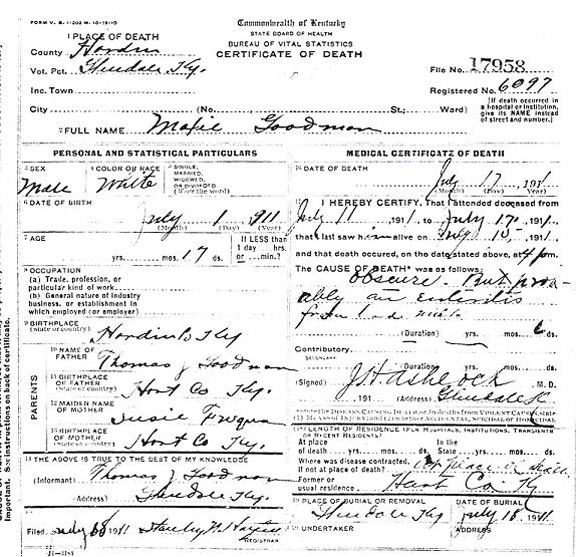 FORM V. S. 1-
Commonwealth of Kentucky
STATE BOARD OF HEALTH
BUREAU OF VITAL STATISTICS
CERTIFICATE OF DEATH
1 PLACE OF DEATH
County Hardin
Vot. Pct. Glendale Ky.
File No. 17958
Inc. Town
Registered No. 6097
City (No. St.; Ward)
[If death occurred in a hospital or institution, give its NAME instead of street and number.]
2 FULL NAME Goodman
PERSONAL AND STATISTICAL PARTICULARS
3 SEX
Male
4 COLOR OR RACE
White
5 SINGLE, MARRIED, WIDOWED, OR DIVORCED
(Write the word)
6 DATE OF BIRTH
July 1 911
(Month) (Day) (Year)
7 AGE
yrs. mos. 17 ds.
If LESS than 1 day hrs. or min.?
8 OCCUPATION
(a) Trade, profession, or particular kind of work
(b) General nature of industry business, or establishment in which employed (or employer)
9 BIRTHPLACE
(State or country)
Hardin Co Ky
PARENTS
10 NAME OF FATHER
Thomas J Goodman
11 BIRTHPLACE OF FATHER
(State or country)
Hart Co Ky.
12 MAIDEN NAME OF MOTHER
Susie
13 BIRTHPLACE OF MOTHER
(State or country)
Hart Co Ky.
14 THE ABOVE IS TRUE TO THE BEST OF MY KNOWLEDGE
(Informant) Thomas J Goodman
(Address) Glendale Ky.
15
Filed July 1911
REGISTRAR
MEDICAL CERTIFICATE OF DEATH
16 DATE OF DEATH
July 17, 1911
(Month) (Day) (Year)
17 I HEREBY CERTIFY, That I attended deceased from
July 11 1911 to July 17 1911
that I last saw him alive on 15, 1911
and that death occurred, on the date stated above, at 4 m.
The CAUSE OF DEATH* was as follows:
obscure. But prob-
ably an
from
(Duration) yrs. mos. 6 ds.
Contributory
SECONDARY
(Duration) yrs. mos. ds.
(Signed) J.H. Ashlock M. D.
191 (Address) Glendale
18 LENGTH OF RESIDENCE (FOR HOSPITALS, INSTITUTIONS, TRANSIENTS OR RECENT RESIDENTS)
At place of death yrs. mos. ds. In the State yrs. mos. ds.
Where was disease contracted, if not at place of death? at place of death
Former or usual residence Hart Co Ky
19 PLACE OF BURIAL OR REMOVAL
Glendale Ky
DATE OF BURIAL
July 18 1911
20 UNDERTAKER
ADDRESS
Important. See instructions on back of certificate.